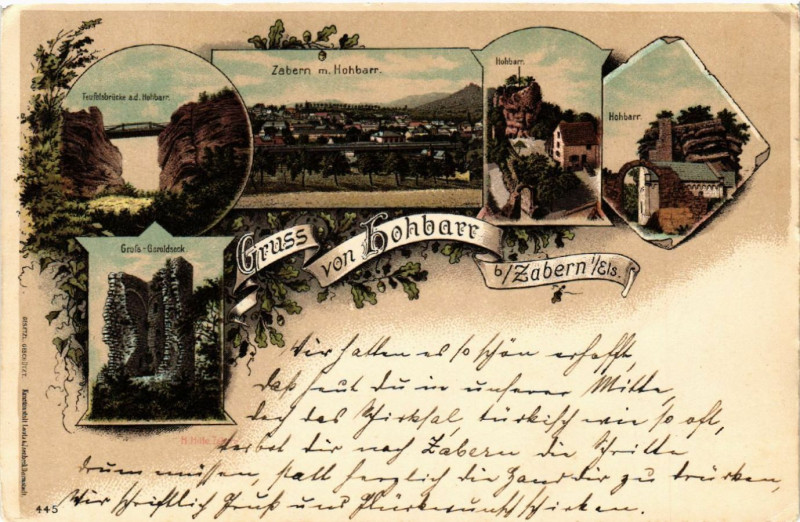 Teufelsbrücke a.d. Hohbarr.
Zabern m. Hohbarr.
Hohbarr.
Hohbarr.
Gross-Geroldseck
Gruss von Hohbarr
b/Zabern i/Els.
Wir hatten es so schön erhofft,
daß heut du in unserer Mitte,
doch das Schicksal, türkisch wie so oft,
verbot dir nach Zabern die Schritte
drum müssen, statt herzlich die Hand dir zu drücken,
Wir schriftlich Gruß und Glückwunsch schicken.
GESETZL. GESCHÜTZT.
445